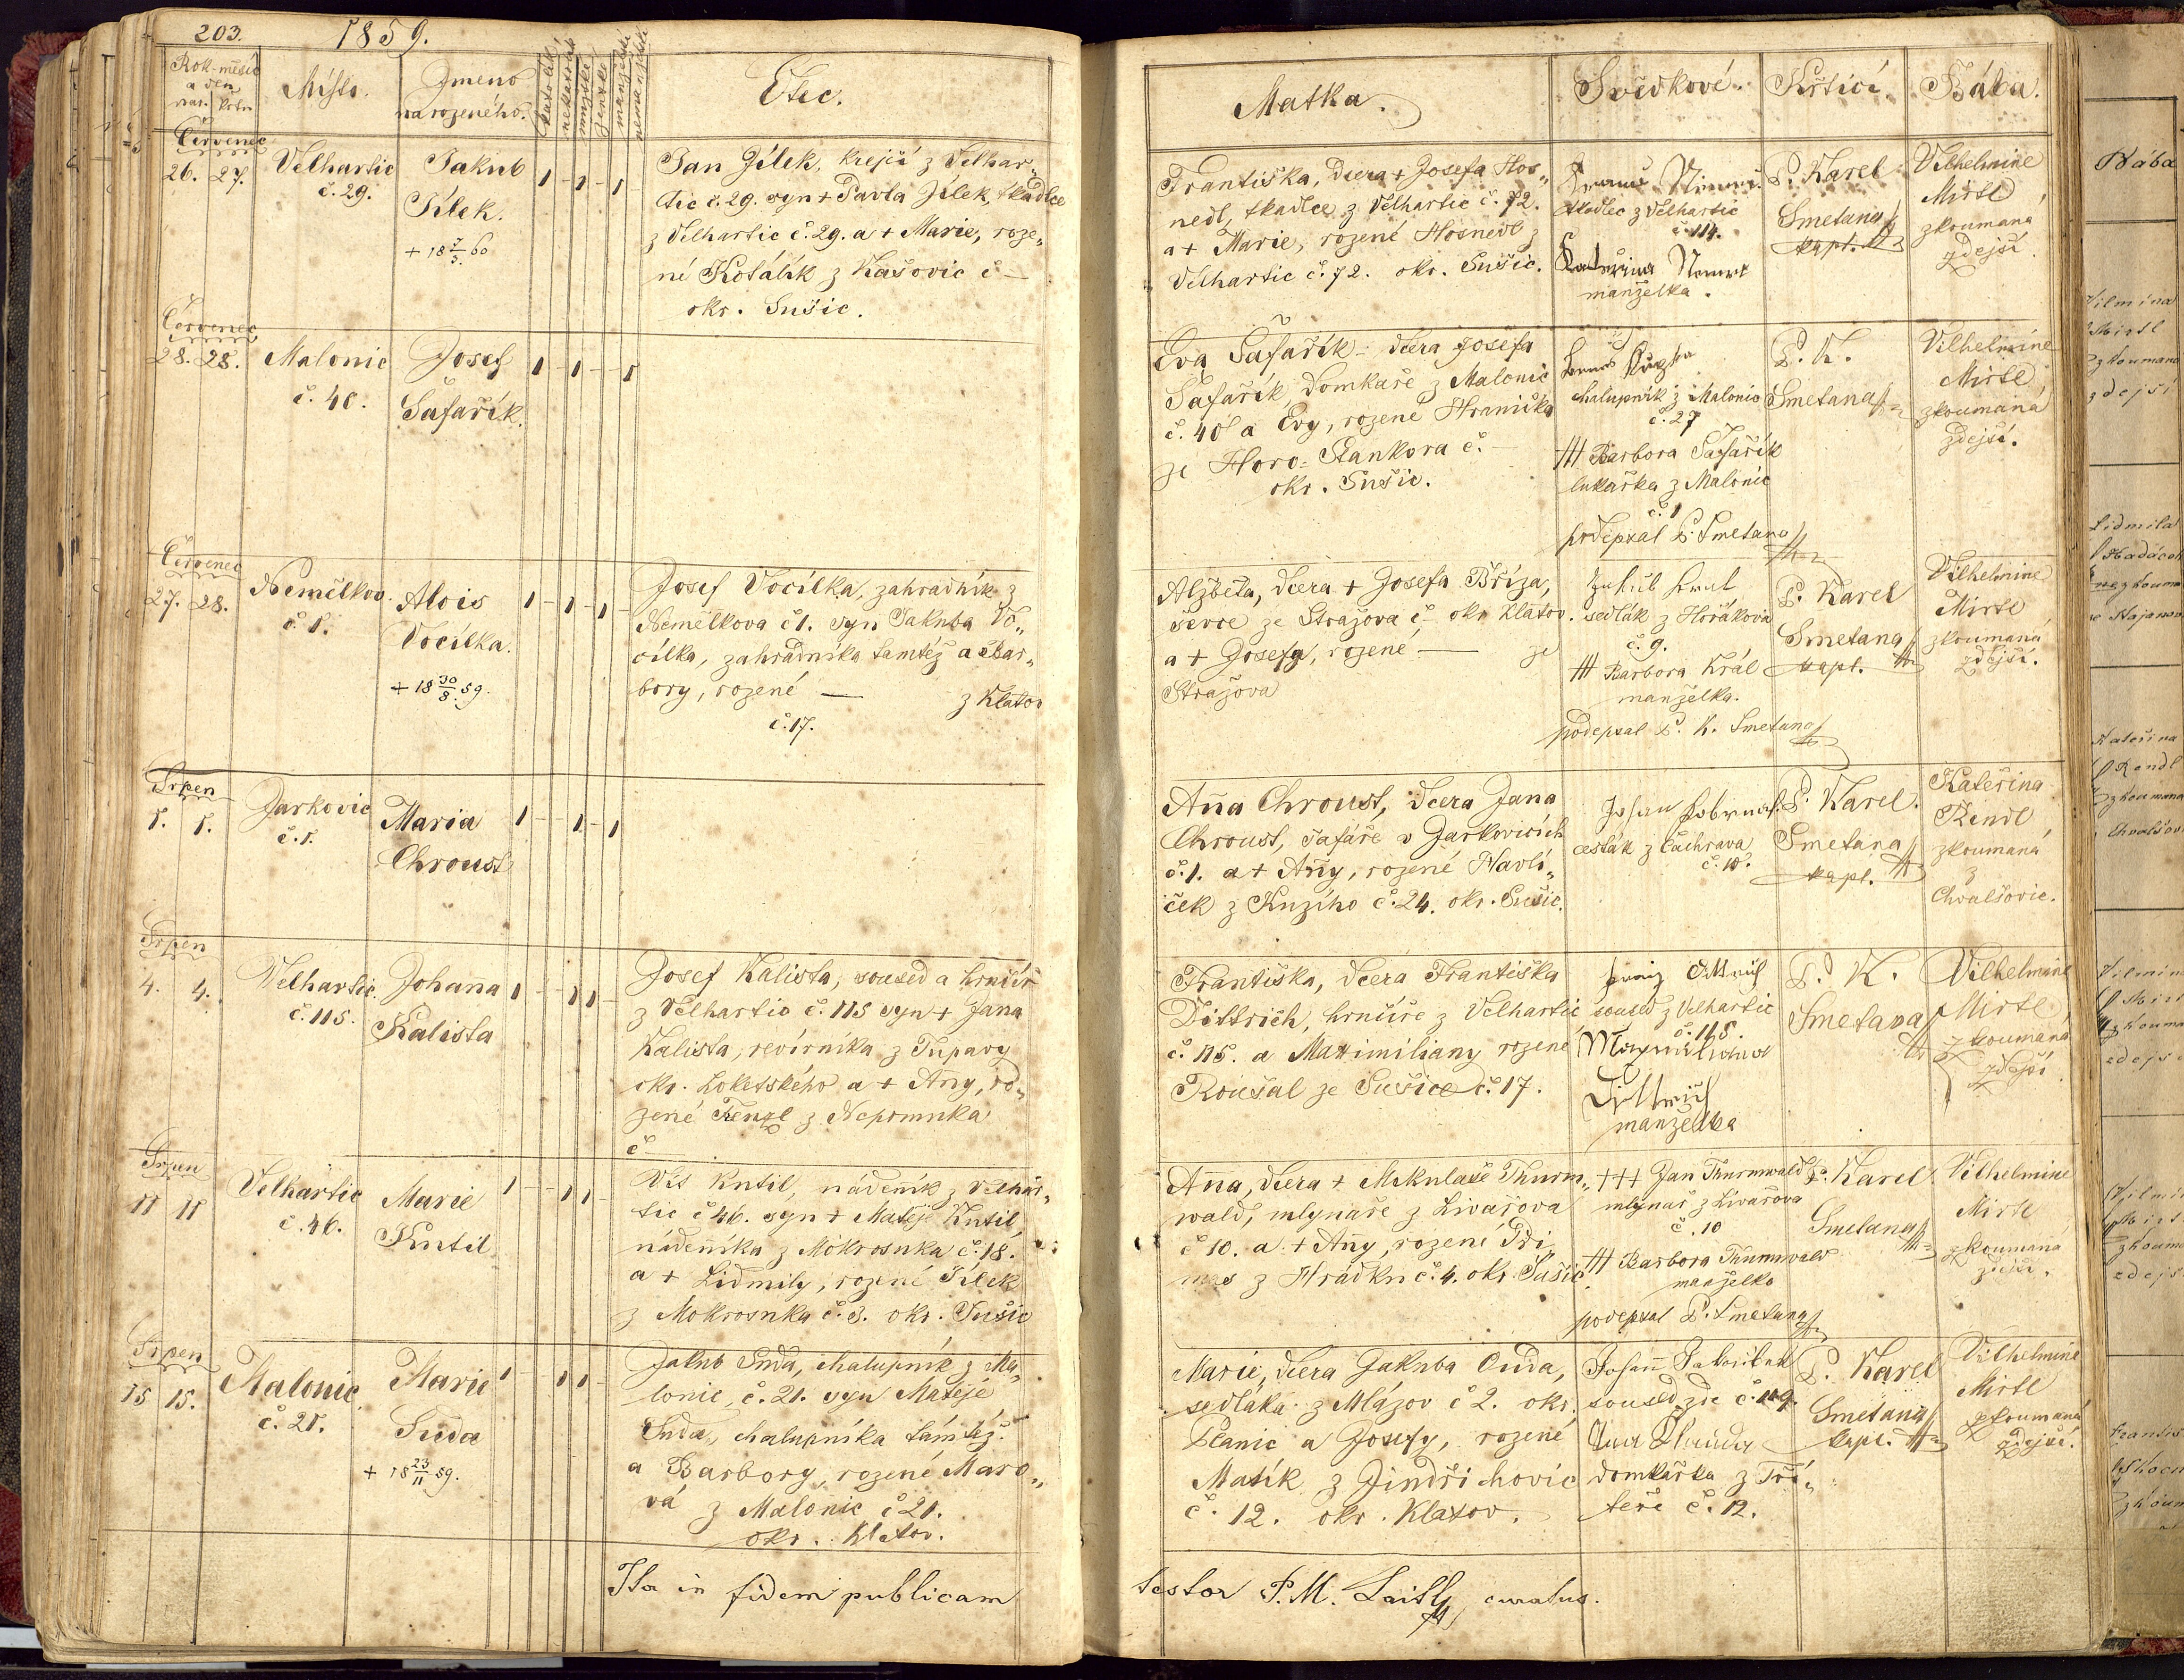 203.
1859.
Rok-měsíc
a den
nar. křtu
Místo.
Jmeno
narozeného.
katolík
nekatolík
mužské
ženské
manželské
nemanželské
Otec.
Červenec
26. 27.
Velhartic
č. 29.
Jakub
Jílek.
+ 18 7/3. 60
1 - 1 - 1
Jan Jílek, krejčí z Velhar„
tic č. 29. syn + Pavla Jílek, tkadlce
z Velhartic č. 29. a + Marie, roze„
né Kotálík z Kašovic č —
okr. Sušic.
Červenec
28. 28.
Malonic
č. 40.
Josef
Šafařík.
1 - 1 - 1
Červenec
27. 28.
Nemělkov.
č. 1.
Alois
Vocílka.
+ 18 30/8. 59.
1 - 1 - 1
Josef Vocílka, zahradník z
Nemělkova č 1. syn Jakuba Vo„
cílka, zahradníka tamtéž a Bar„
bory, rozené — z Klatov
č. 17.
Srpen
1. 1.
Jarkovic
č. 1.
Maria
Chroust
1 - 1 - 1
Srpen
4. 4.
Velhartic.
č. 115.
Johaña
Kalista
1 - 1 1
Josef Kalista, soused a hrnčíř
z Velhartic č. 115 syn + Jana
Kalista, revírníka z Tupary
okr. Loketského a + Añy, ro„
zené Fenzl z Nepomuka
č
Srpen
11 11
Velhartic
č. 46.
Marie
Kutil
1 - 1 1
Vít Kutil, nádeník z Velhar„
tic č 46. syn + Matěje Kutil,
nádeníka z Mokrosuka č. 18.
a + Lidmily, rozené Jílek
z Mokrosuka č. 3. okr. Sušic
Srpen
15 15.
Malonic
č. 21.
Marie
Suda
+ 18 23/11 59.
1 - 1 1
Jakub Suda, chalupník z Ma„
lonic, č. 21. syn Matěje
Suda, chalupníka tamtéž
a Barbory, rozené Maro„
vá z Malonic č 21.
okr. Klatov.
Ita in fidem publicam
Matka.
Svědkové.
Křtící.
Bába.
Františka, dcera + Josefa Hos„
nedl, tkadlce z Velhartic č. 72.
a + Marie, rozené Hosnedl z
Velhartic č. 72. okr. Sušic.
tkadlec z Velhartic
č. 114.
Kateřina
manželka.
P. Karel
Smetana
kapl.
Vilhelmine
Mirtl
zkoumaná
zdejší
Eva Šafařík - dcera Josefa
Šafařík, domkaře z Malonic
č. 40 a Evy, rozené Hranička
ze Horo- Stankora č. —
okr. Sušic.
chalupník z Malonic
č. 27
+++ Barbora Šafařík
lukařka z Malonic
č. 1
podepsal P. Smetana
P. K.
Smetana
Vilhelmine
Mirtl,
zkoumaná
zdejší.
Alžběta, dcera + Josefa Bříza,
ševce ze Stražova č — okr Klatov.
a + Josefy, rozené — ze
Stražova
sedlák z Horákova
č. 9.
+++ Barbora Král
manželka.
podepsal P. K. Smetana
P. Karel
Smetana
kapl.
Vilhelmine
Mirtl
zkoumaná
zdejší.
Aña Chroust, dcera Jana
Chroust, šafáře v Jarkovicích
č. 1. a + Añy, rozené Havlí„
ček z Knzího č. 24. okr. Sušic.
Johan
cesták z Čachrava
č. 10.
P. Karel.
Smetana
kapl.
Kateřina
Rendl
zkoumaná
z
Chvalšovic.
Františka, dcera Františka
Dittrich, hrnčíře z Velhartic
č. 115. a Maximiliany rozené
Roušal ze Sušice č. 17.
Dittrich
soused z Velhartic
č. 115.
Maxmiliana
Dittrich
manželka
P. K.
Smetana
Vilhelmine
Mirtl,
zkoumaná
zdejší.
Aña, dcera + Mikulaše Thurn„
wald, mlynaře z Livařova
č 10. a + Añy, rozené
z Hrádku č. 4. okr. Sušic.
+++ Jan Thurnwald
mlynař z Livařova
č. 10
+++ Barbora Thurnwald
manželka
podepsal P. Smetana
P. Karel
Smetana
Vilhelmine
Mirtl
zkoumaná
zdejší.
Marie, dcera Jakuba Ouda,
sedláka z Mlázov č 2. okr.
Planic a Josefy, rozené
Mašík z Jindřichovic
č. 12. okr. Klatov.
Johann
soused zde č. 119.
domkařka z Tři„
teře č. 12.
P. Karel
Smetana
kapl.
Vilhelmine
Mirtl
zkoumaná
zdejší.
testor P. M. curatus.
Bába